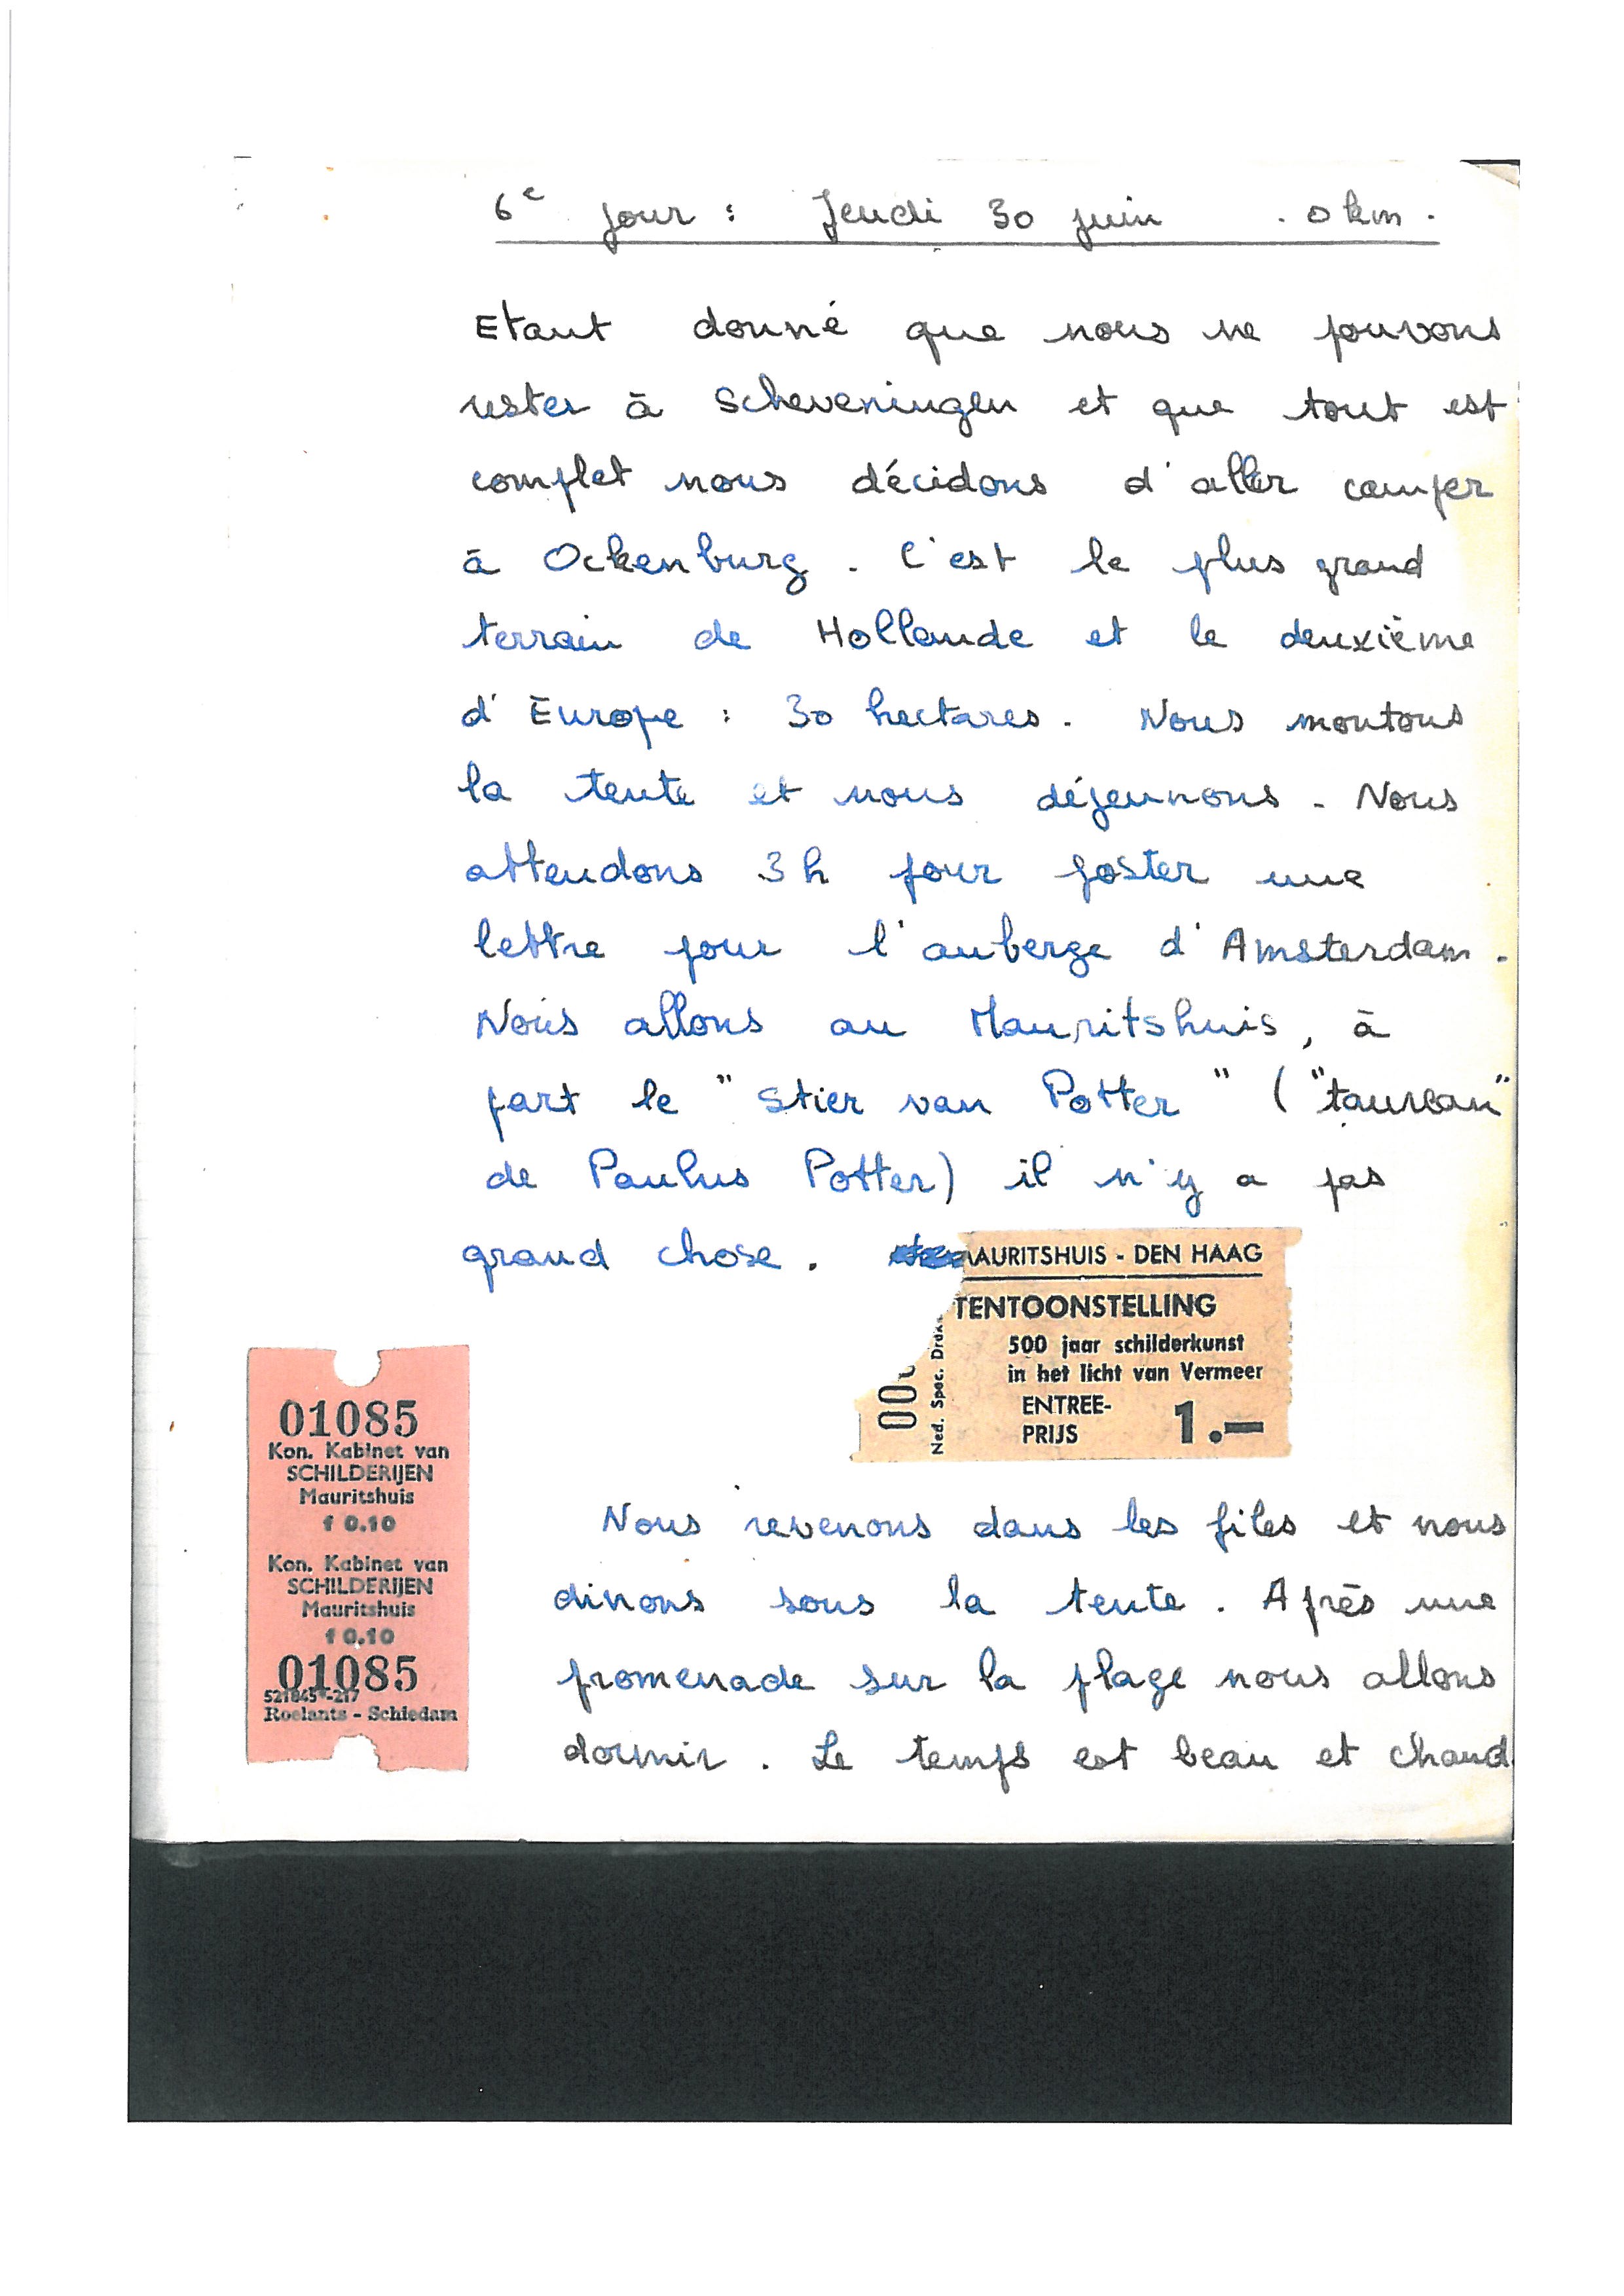 6e jour : Jeudi 30 juin . 0 km .
Etant donné que nous ne pouvons
rester à Scheveningen et que tout est
complet nous décidons d'aller camper
à Ockenburg . C'est le plus grand
terrain de Hollande et le deuxième
d'Europe : 30 hectares . Nous montons
la tente et nous déjeunons . Nous
attendons 3 h pour poster une
lettre pour l'auberge d'Amsterdam .
Nous allons au Mauritshuis , à
part le " Stier van Potter " ( "taureau"
de Paulus Potter) il n'y a pas
grand chose .
AURITSHUIS - DEN HAAG
TENTOONSTELLING
500 jaar schilderkunst
in het licht van Vermeer
ENTREE-
PRIJS 1.—
Ned. Spec. Druk
00
01085
Kon. Kabinet van
SCHILDERIJEN
Mauritshuis
f 0.10
Kon. Kabinet van
SCHILDERIJEN
Mauritshuis
f 0.10
01085
Roelants - Schiedam
Nous revenons dans les files et nous
dinons sous la tente . Après une
promenade sur la plage nous allons
dormir . Le temps est beau et chaud